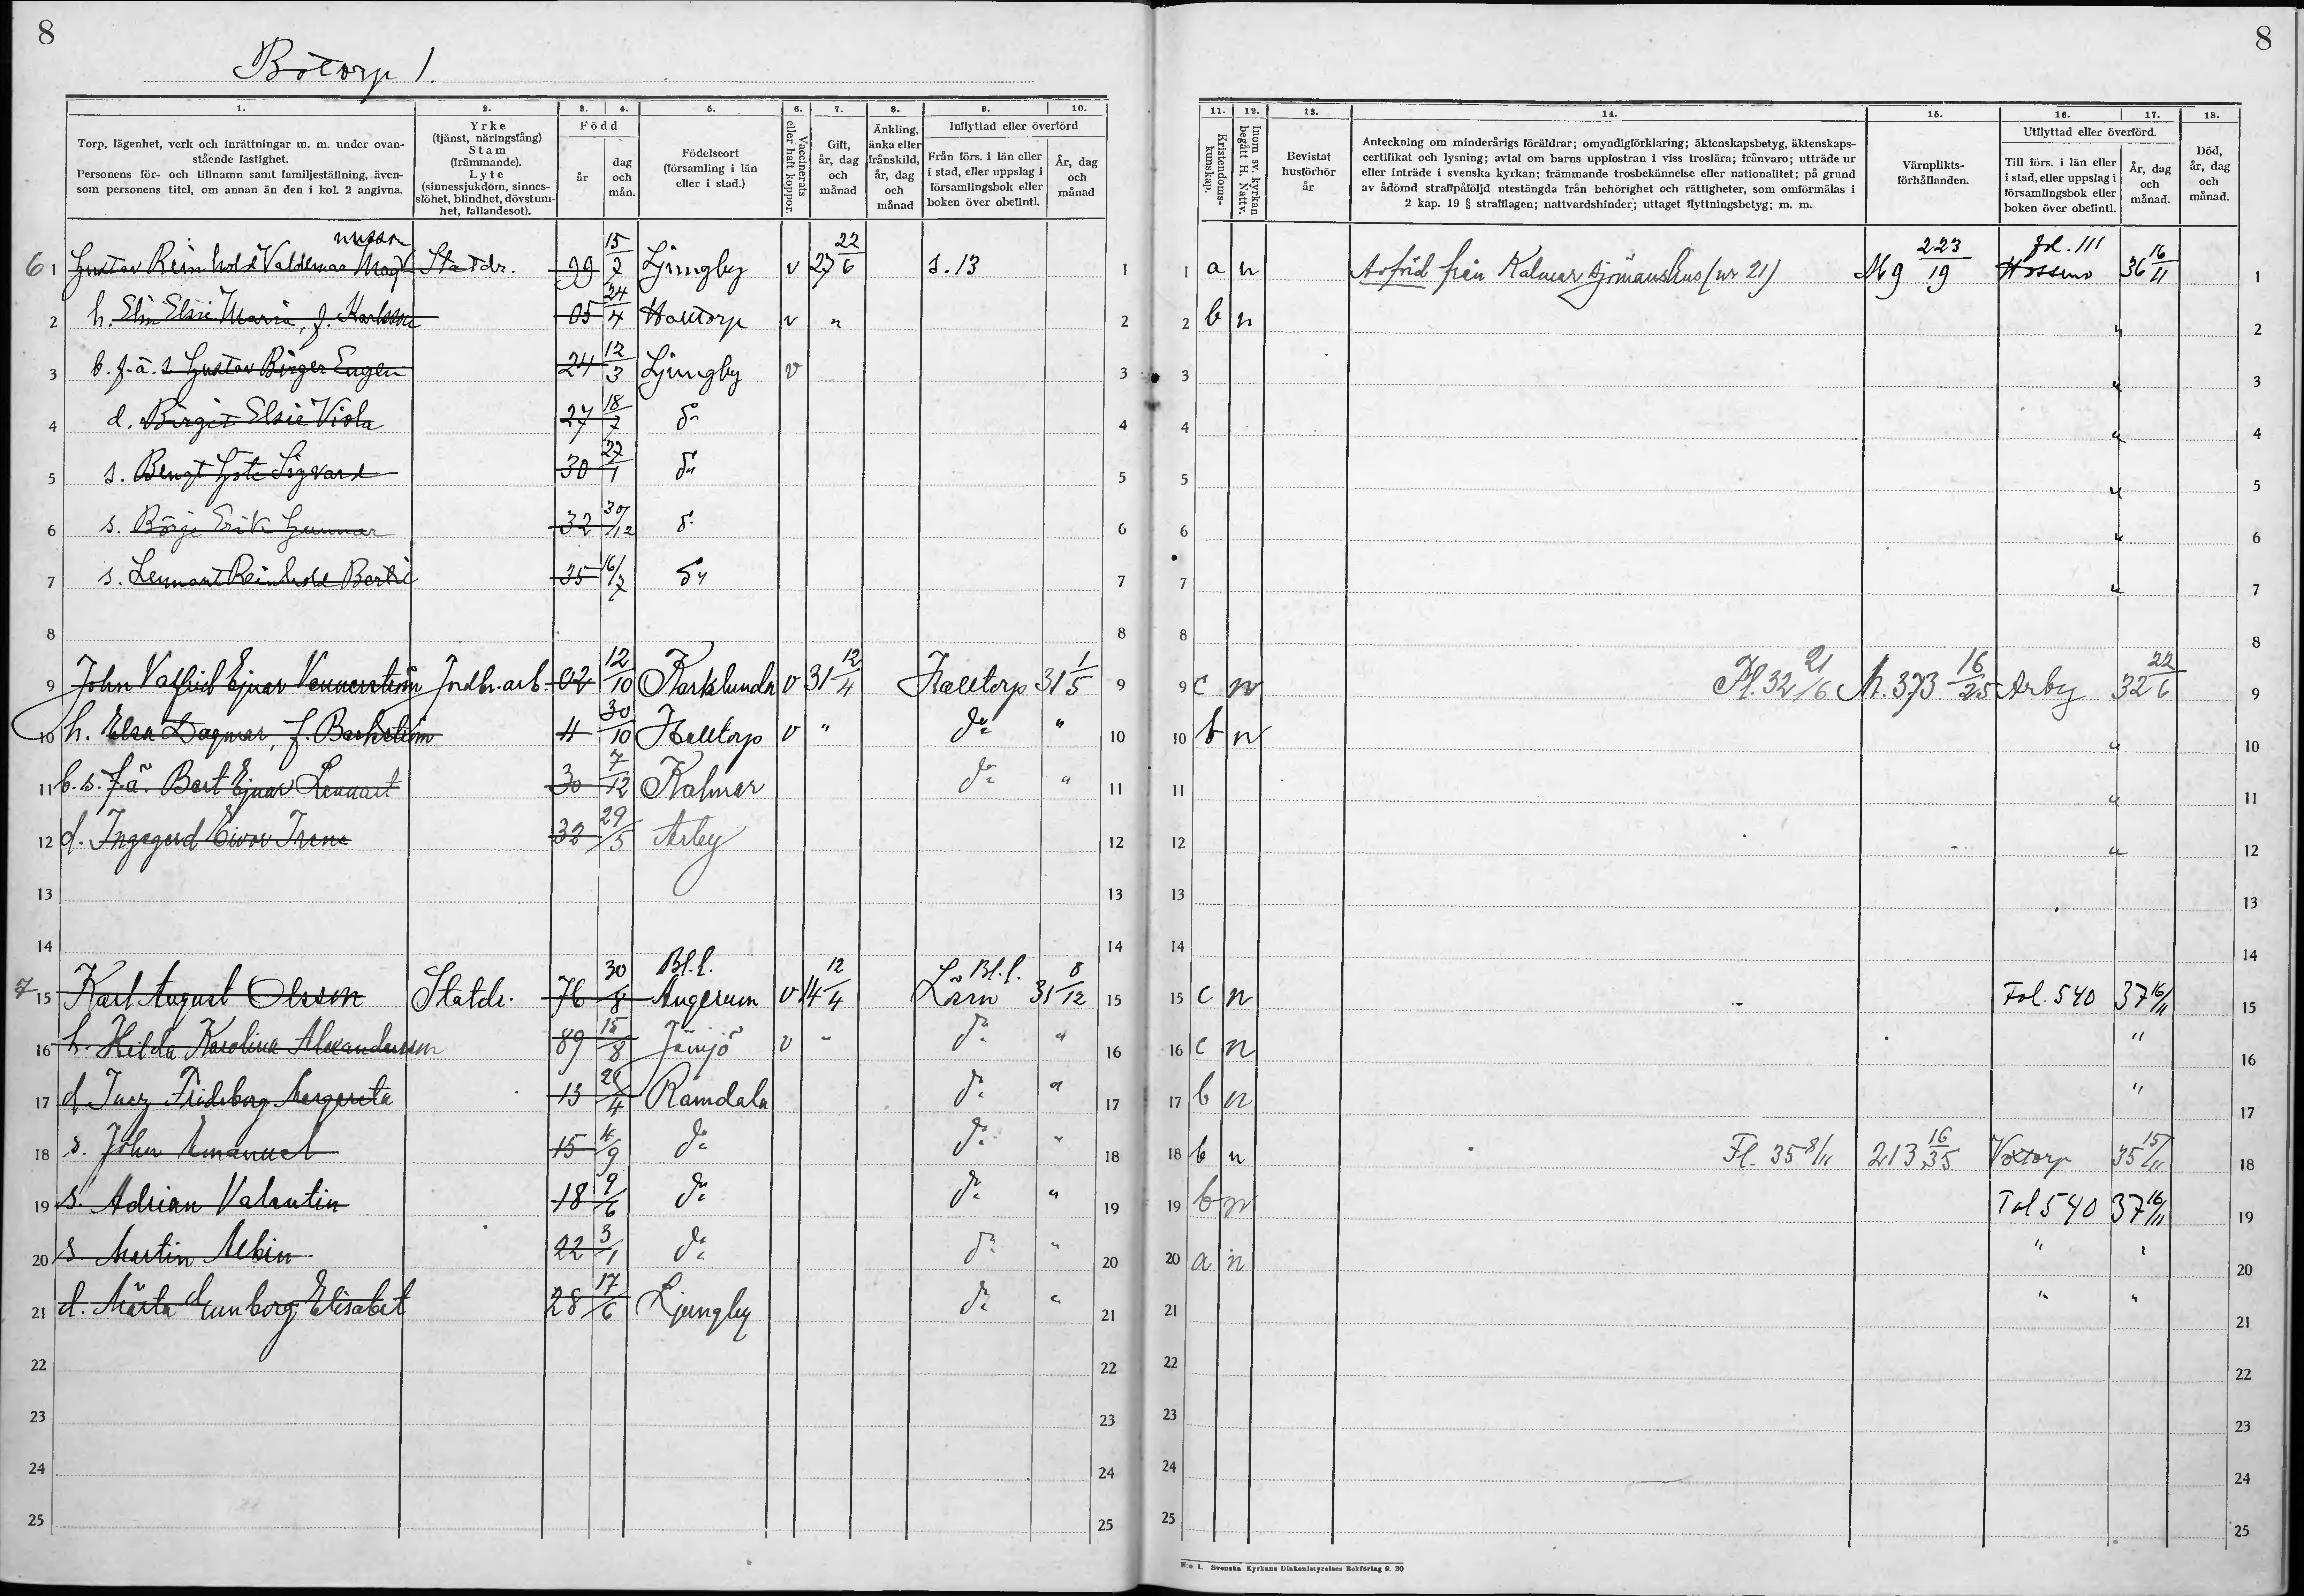 8
Bötorp 1.
1. 2. 3. 4. 5. 6. 7. 8. 9. 10.
Torp, lägenhet, verk och inrättningar m. m. under ovan-
stående fastighet.
Personens för- och tillnamn samt familjeställning, även-
som personens titel, om annan än den i kol. 2 angivna.
Yrke
(tjänst, näringsfång)
Stam
(främmande).
Lyte
(sinnessjukdom, sinnes-
slöhet, blindhet, dövstum-
het, fallandesot).
Född
år
dag
och
mån.
Födelseort
(församling i län
eller i stad.)
Vaccinerats
eller haft koppor.
Gift,
år, dag
och
månad
Änkling,
änka eller
frånskild,
år, dag
och
månad
Inflyttad eller överförd
Från förs. i län eller
i stad, eller uppslag i
församlingsbok eller
boken över obefintl.
År, dag
och
månad
6 1 Gustav Reinhold Valdemar Magnusson Statdr. 99 15/7 Ljungby v 27 22/6 s. 13 1
2 h. Elin Elsie Maria, f. Karlsson 05 24/4 Halltorp v " 2
3 b. f. ä. s Gustav Birger Eugen 24 12/3 Ljungby v 3
4 d. Birgit Elsie Viola 27 18/7 do 4
5 s. Bengt Göte Sigvard 30 27/1 do 5
6 s. Börje Erik Gunnar 32 30/12 do 6
7 s. Lennart Reinhold Bertil 35 16/7 do 7
8 8
9 John Valfrid Ejnar Vennerström Jordbr. arb. 02 12/10 Karlslunda v 31 12/4 Halltorp 31 1/5 9
10 h. Elsa Dagmar, f. Backström 11 30/10 Halltorp v " do " 10
11 b. s. f. ä. Bert Ejnar Lennart 30 7/12 Kalmar do " 11
12 d. Ingegerd Eivor Irene 32 29/5 Arby 12
13 13
14 14
7 15 Karl August Olsson Statdr. 76 30/8 Bl. l. Augerum v 14 12/4 Bl. l. Lösen 31 8/12 15
16 h. Hilda Karolina Alexandersson 89 15/8 Jämjö v " do " 16
17 d Inez Fridsborg Margareta 13 20/4 Ramdala do " 17
18 s. John Emanuel 15 4/9 do do " 18
19 s. Adrian Valentin 18 9/6 do do " 19
20 s Martin Albin 22 3/1 do do " 20
21 d. Märta Gunborg Elisabet 28 17/6 Ljungby do " 21
22 22
23 23
24 24
25 25
8
11. 12. 13. 14. 15. 16. 17. 18.
Kristendoms-
kunskap.
Inom sv. kyrkan
begått H. Nattv.
Bevistat
husförhör
år
Anteckning om minderårigs föräldrar; omyndigförklaring; äktenskapsbetyg, äktenskaps-
certifikat och lysning; avtal om barns uppfostran i viss troslära; frånvaro; utträde ur
eller inträde i svenska kyrkan; främmande trosbekännelse eller nationalitet; på grund
av ådömd straffpåföljd utestängda från behörighet och rättigheter, som omförmälas i
2 kap. 19 § strafflagen; nattvardshinder; uttaget flyttningsbetyg; m. m.
Värnplikts-
förhållanden.
Utflyttad eller överförd.
Till förs. i län eller
i stad, eller uppslag i
församlingsbok eller
boken över obefintl.
År, dag
och
månad.
Död,
år, dag
och
månad.
1 a n Avförd från Kalmar sjömanshus (nr 21) Mg 223/19 fol. 111 Hossmo 36 16/11 1
2 b n " 2
3 " 3
4 " 4
5 " 5
6 " 6
7 " 7
8 8
9 c n Fl. 32 21/6 M. 373 16/25 Arby 32 22/6 9
10 b n " 10
11 " 11
12 " 12
13 13
14 14
15 c n Fol. 540 37 16/11 15
16 c n " 16
17 b n " 17
18 b n Fl. 35 8/11 213 16/35 Voxtorp 35 15/11 18
19 b n Fol 540 37 16/11 19
20 a n " " 20
21 " " 21
22 22
23 23
24 24
25 25
N:o 1. Svenska Kyrkans Diakonistyrelses Bokförlag 9. 30